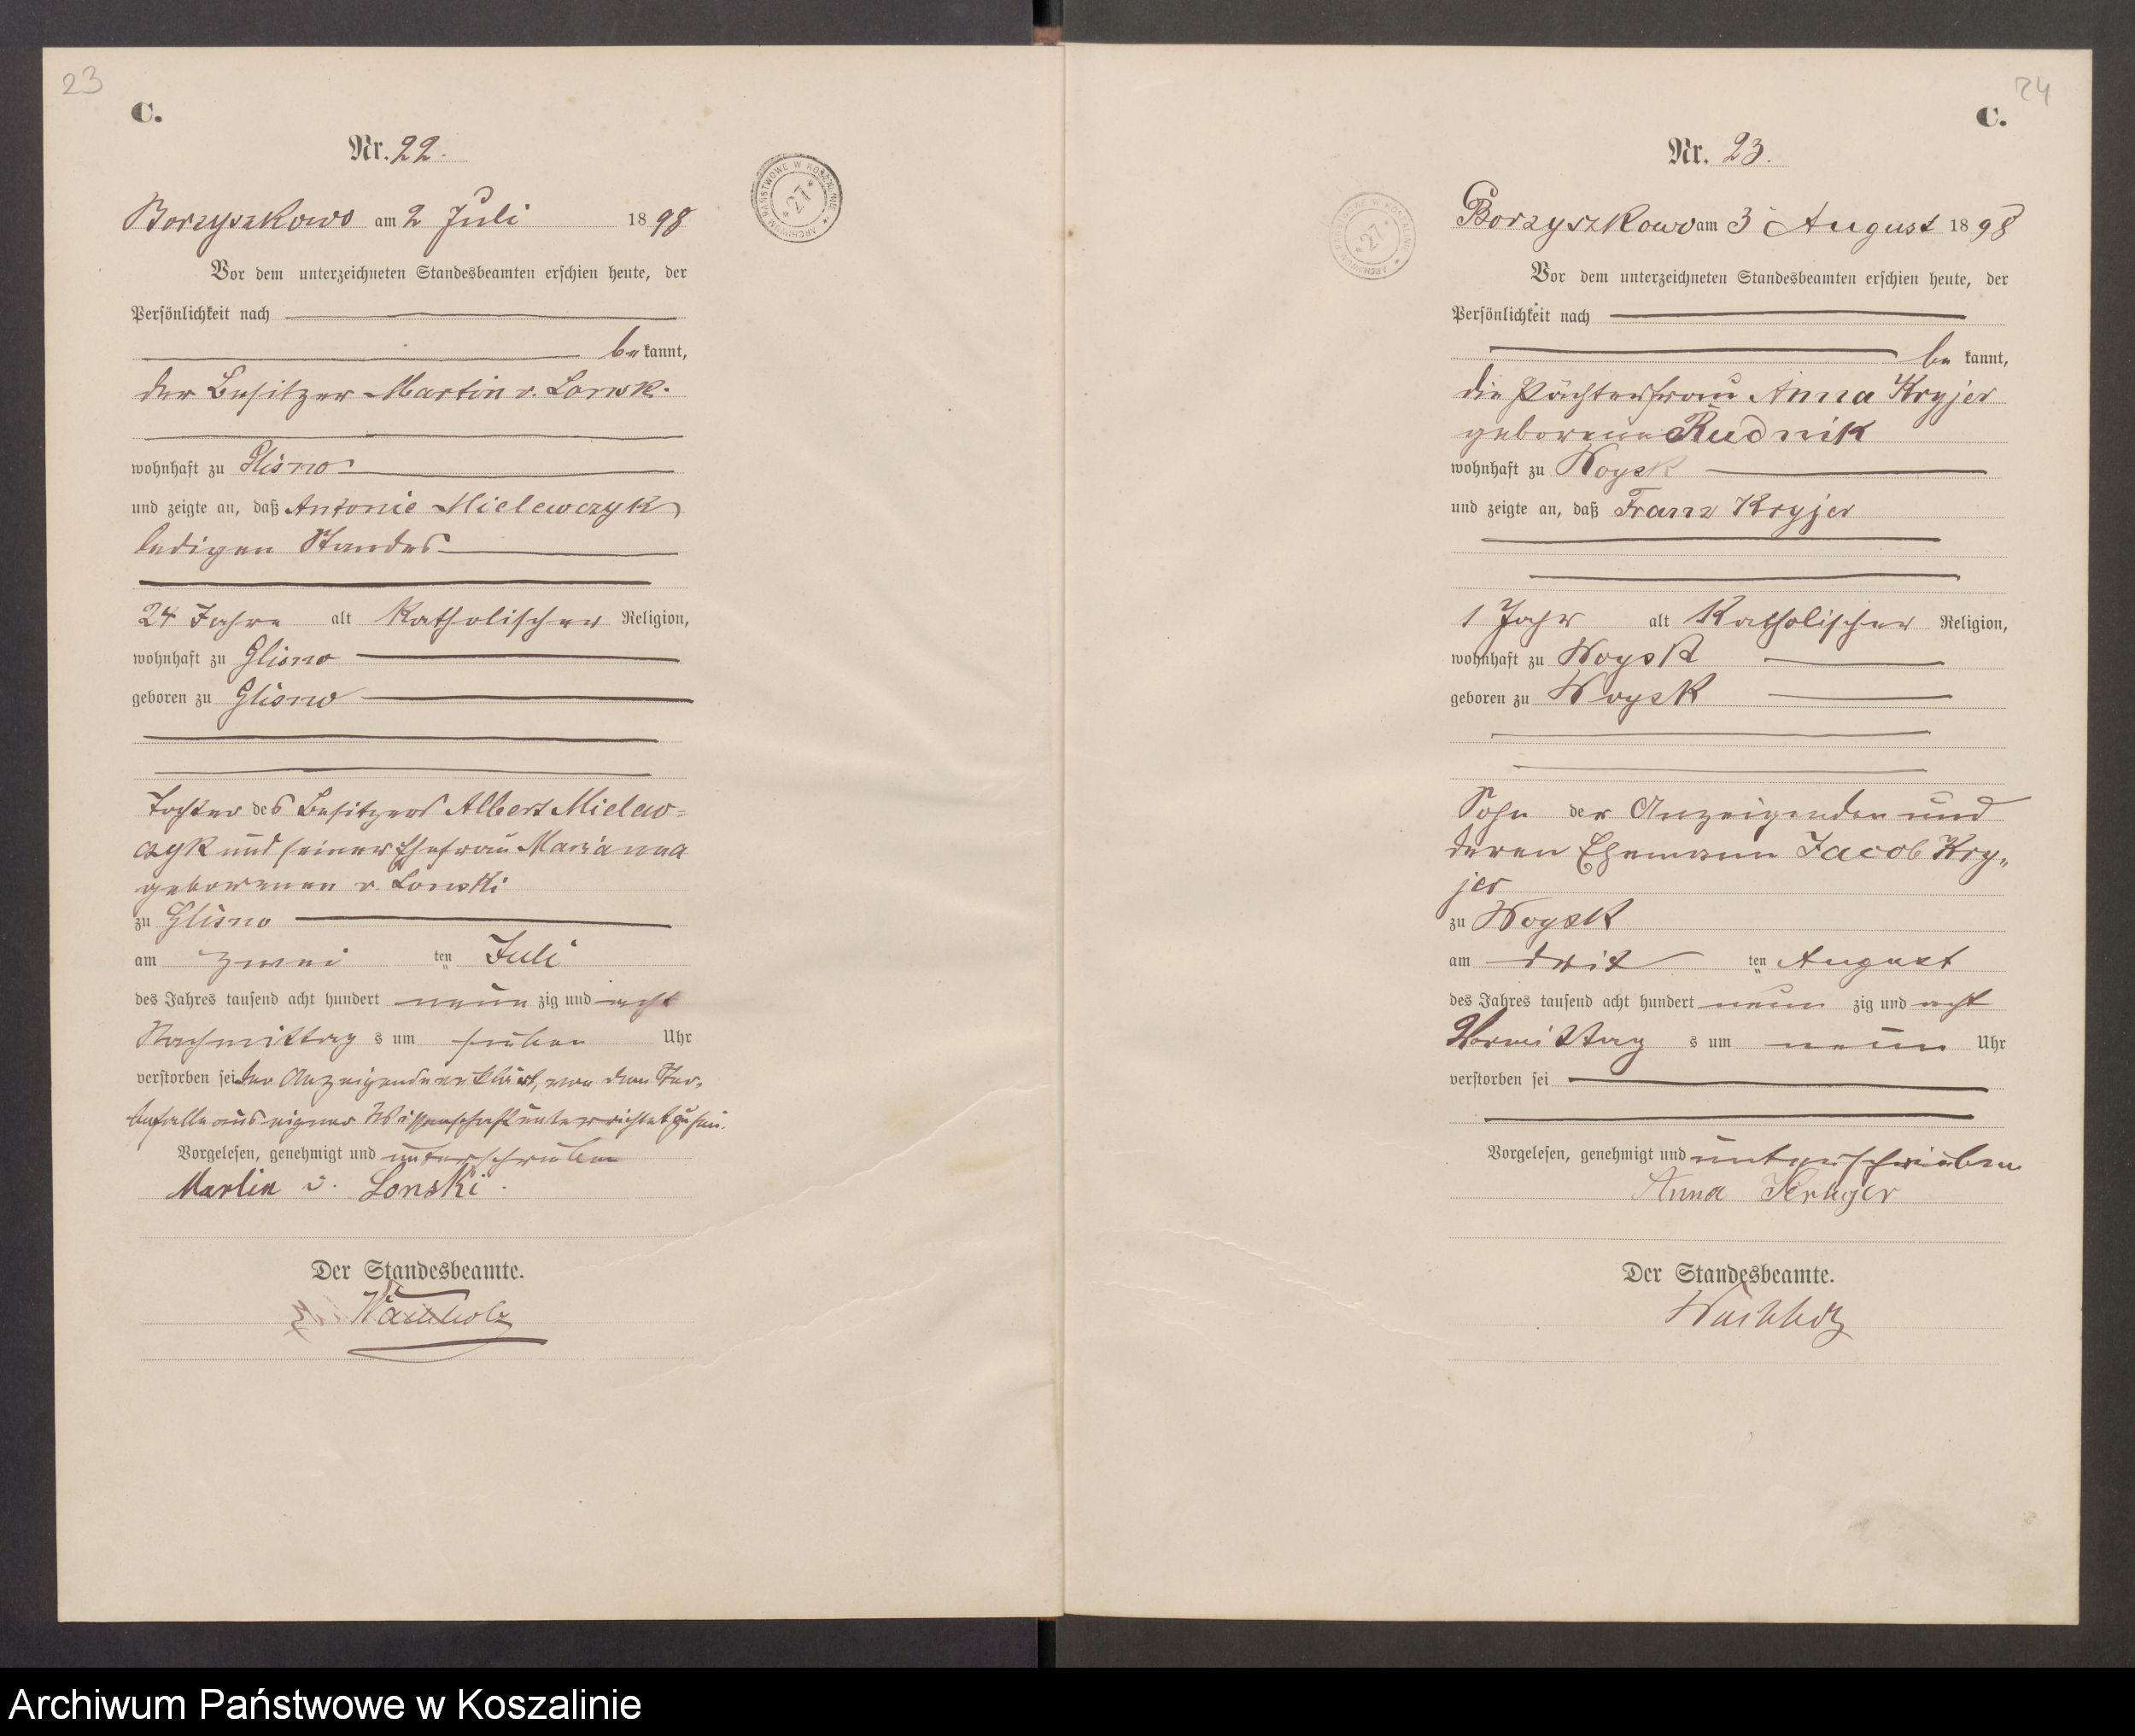 23
C.
Nr. 22.
ARCHIWUM PAŃSTWOWE W KOSZALINIE * 27 *
Borzyszkowo am 2 Juli 1898
Vor dem unterzeichneten Standesbeamten erschien heute, der
Persönlichkeit nach
be kannt,
der Besitzer Martin v. Lonsk.
wohnhaft zu Glisno
und zeigte an, daß Antonie Mielewczyk
ledigen Standes
24 Jahre alt Katholischer Religion,
wohnhaft zu Glisno
geboren zu Glisno
Tochter des Besitzers Albert Mielew=
czyk und seiner Ehefrau Marianna
geborenen v. Lonski
zu Glisno
am zwei ten Juli
des Jahres tausend acht hundert neun zig und acht
Nachmittag s um sieben Uhr
verstorben sei der Anzeigende erklärt, von dem Ster-
befalle aus eigner Wissenschaft unterrichtet zu sein.
Vorgelesen, genehmigt und unterschrieben
Martin v. Lonski.
Der Standesbeamte.
Wachholz
24
C.
Nr. 23.
ARCHIWUM PAŃSTWOWE W KOSZALINIE * 27 *
Borzyszkowo am 3 August 1898
Vor dem unterzeichneten Standesbeamten erschien heute, der
Persönlichkeit nach
be kannt,
die Pächterfrau Anna Kryjer
geborene Rudnik
wohnhaft zu Woysk
und zeigte an, daß Franz Kryjer
1 Jahr alt Katholischer Religion,
wohnhaft zu Woysk
geboren zu Woysk
Sohn der Anzeigenden und
deren Ehemann Jacob Kry„
jer
zu Woysk
am drit ten August
des Jahres tausend acht hundert neun zig und acht
Vormittag s um neun Uhr
verstorben sei
Vorgelesen, genehmigt und unterschrieben
Anna
Der Standesbeamte.
Wachholz
Archiwum Państwowe w Koszalinie